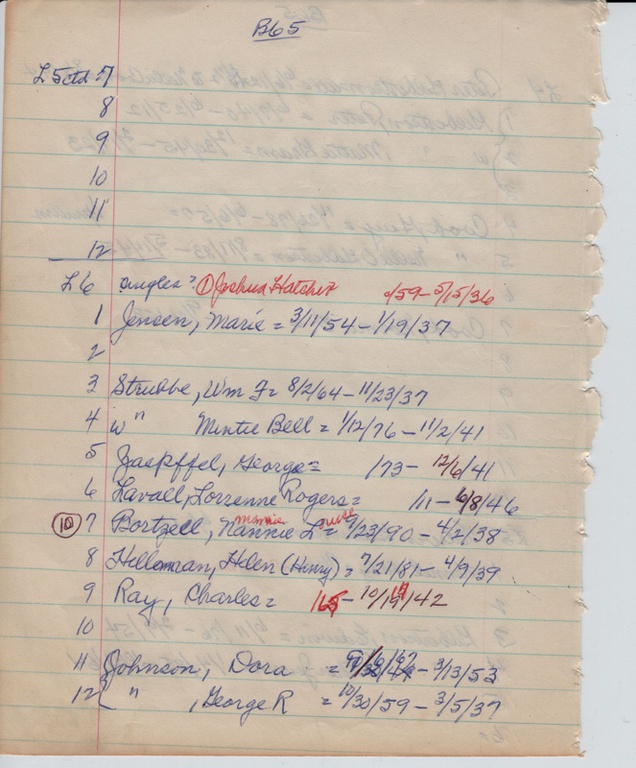 B65
L5ctd 7
8
9
10
11
12
L6 singles? ① Joshua Hatcher /59-5/15/36
1 Jensen, Marie = 3/11/54-1/19/37
2
3 Strubbe, Wm F= 8/2/64-11/23/37
4 w " Mintie Bell = 1/12/76-11/2/41
5 George= /73- 12/6/41
6 Lavall, Lorrenne Rogers= /11-6/8/46
⑩ 7 Bortzell, Nannie Minnie L = /23/90-4/2/38
8 Helen (Henry) = 7/21/81-4/9/39
9 Ray, Charles= 165-10/19/42
10
11 Johnson, Dora = -3/13/53
12 ( " , George R = 10/30/59-3/5/37